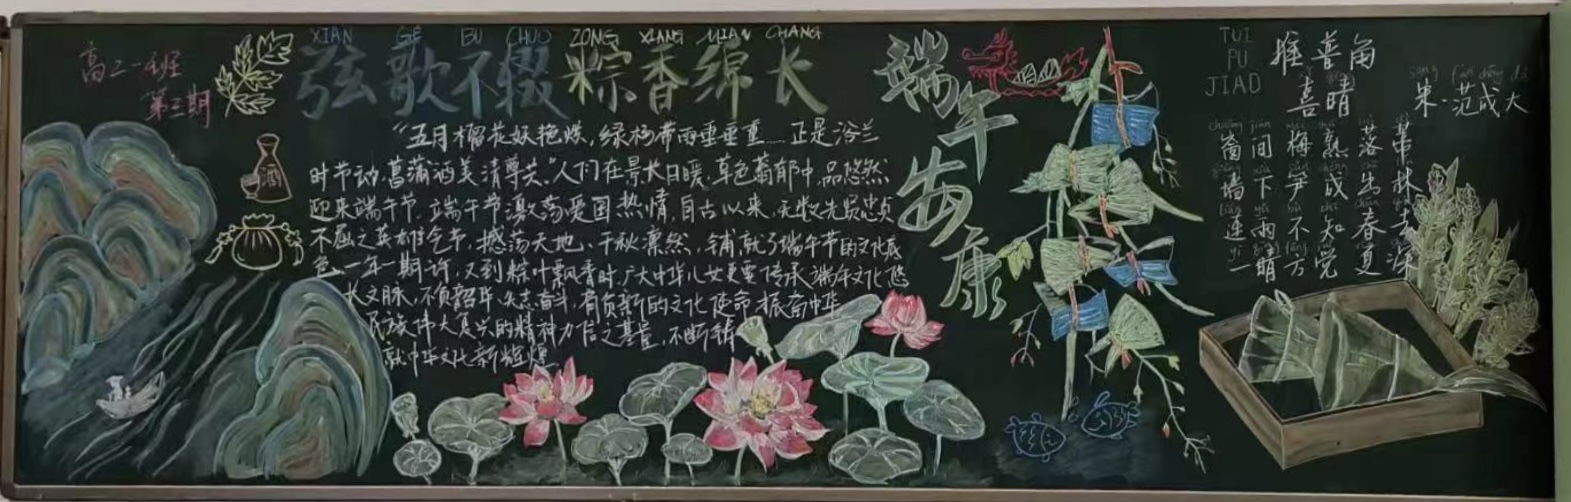 高二一班
第三期
XIAN GE BU CHUO ZONG XIANG MIAN CHANG
弦歌不缀 粽香绵长
酒
“五月榴花妖艳烘,绿杨带雨垂垂重……正是浴兰
时节动,菖蒲酒美清尊共”人们在景长日暖,草色蓊郁中,品悠然
迎来端午节,端午节激荡爱国热情,自古以来,无数先贤忠贞
不屈之英雄气节,撼荡天地、千秋凛然,铺就了端午节的文化底
色,一年一期许,又到粽叶飘香时,广大中华儿女更要传承端午文化悠
长文脉,不负韶华,矢志奋斗,肩负新的文化使命,振奋中华
民族伟大复兴的精神力信之基量,不断铸
就中华文化新辉煌
端午安康
TUI
PU
JIAO
推普角
喜晴
宋·范成大
窗间梅熟落蒂
墙下笋成出林
连雨不知春去
一晴方觉夏深